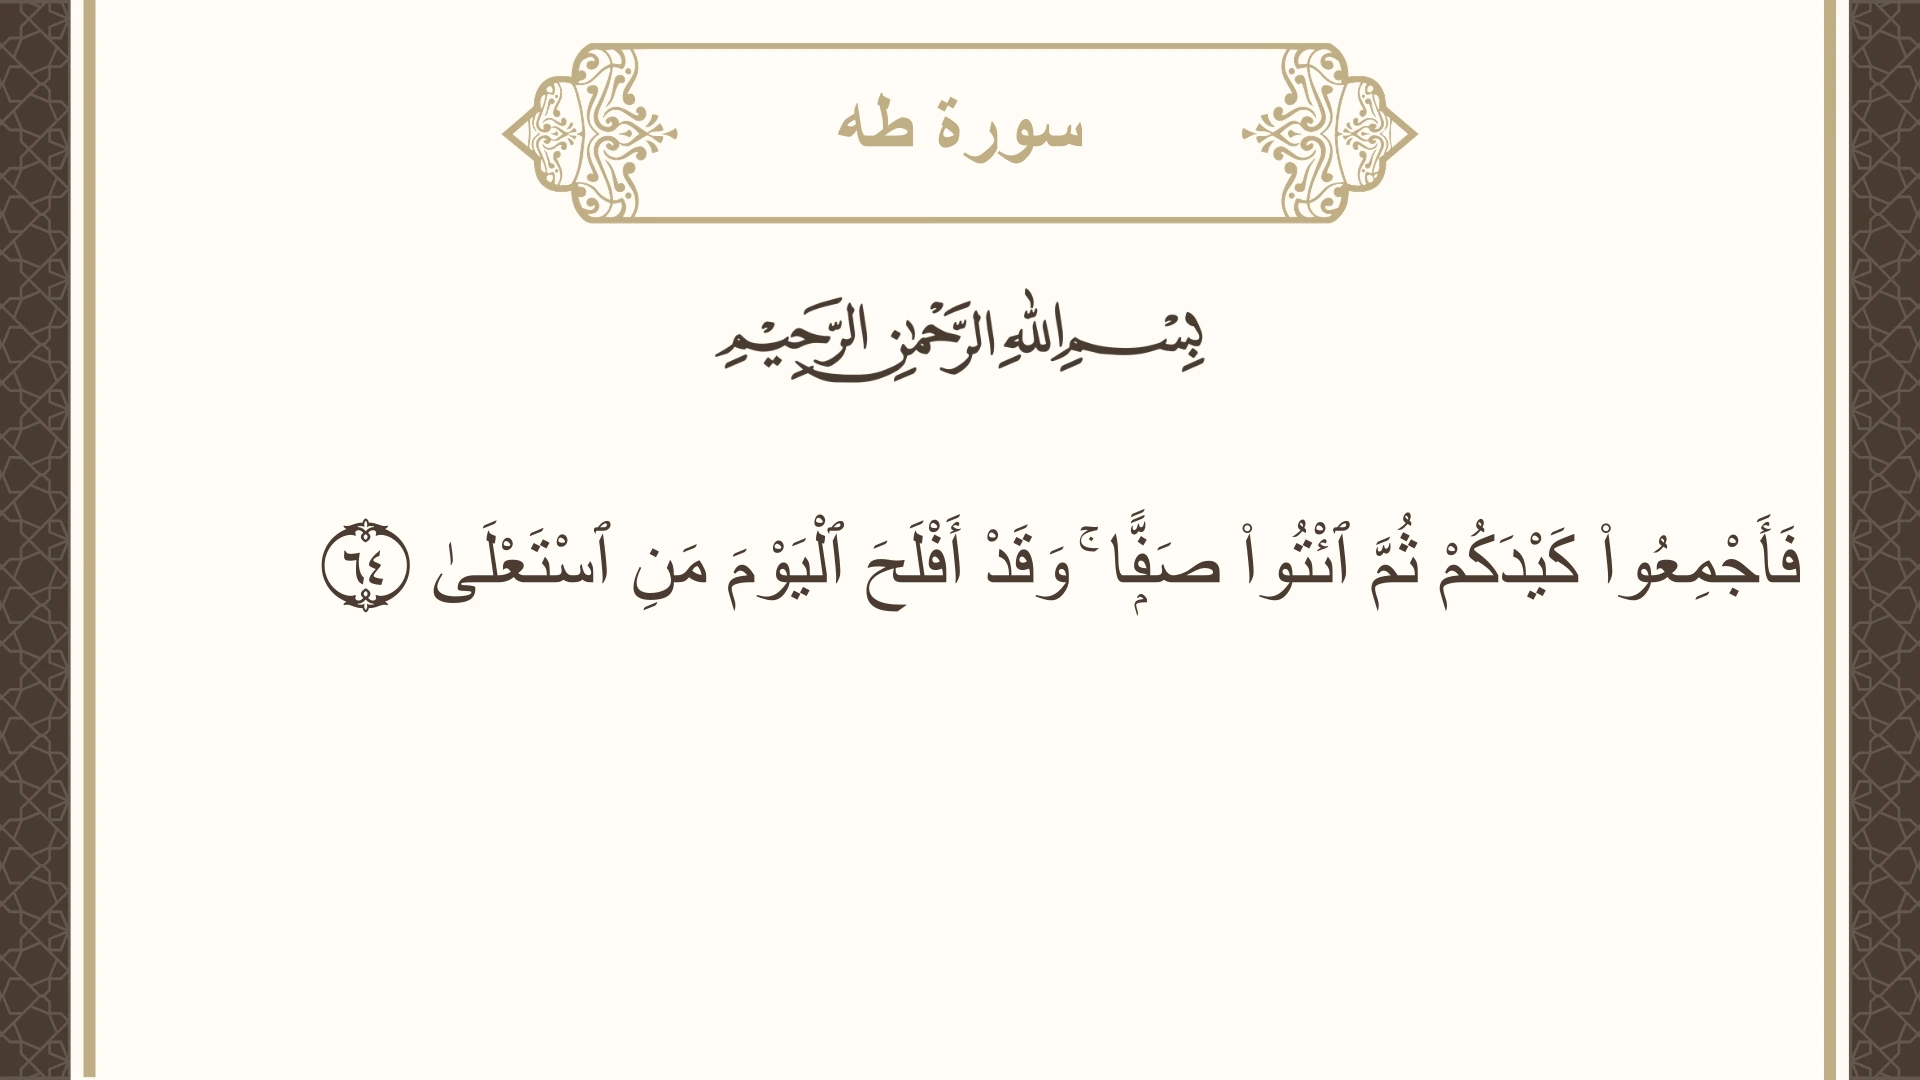 سورة طه
بِسْمِ اللهِ الرَّحْمٰنِ الرَّحِيْمِ
فَأَجْمِعُوا۟ كَيْدَكُمْ ثُمَّ ٱئْتُوا۟ صَفًّۭا ۚ وَقَدْ أَفْلَحَ ٱلْيَوْمَ مَنِ ٱسْتَعْلَىٰ ٦٤